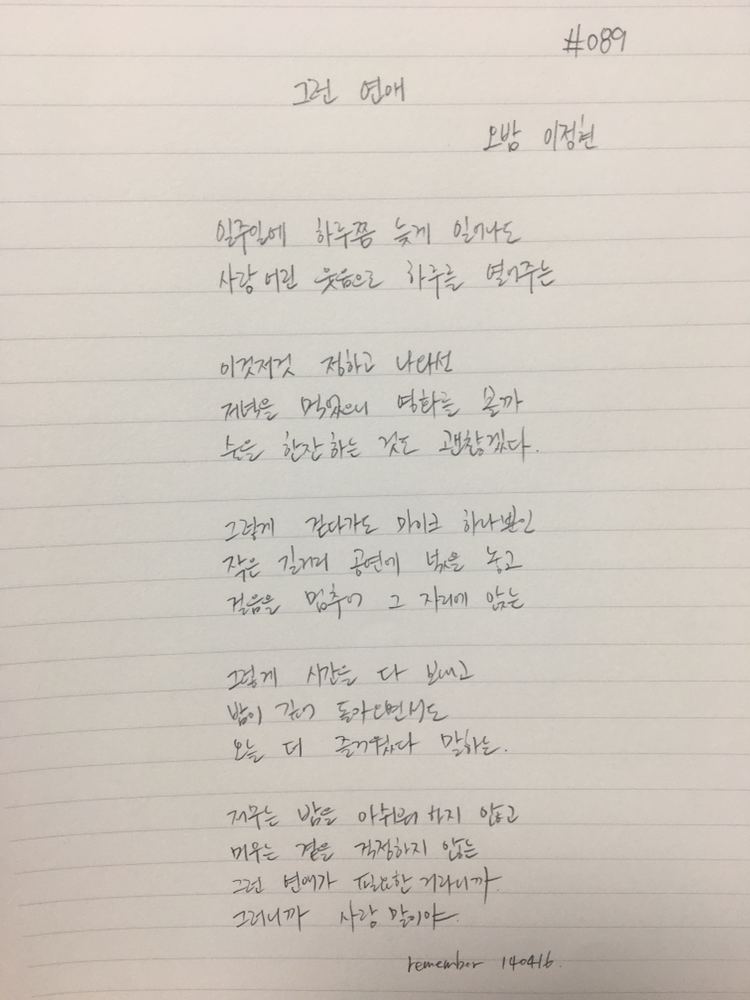 #089
그런 연애
오밤 이정현
일주일에 하루쯤 늦게 일어나도
사랑 어린 웃음으로 하루를 열어주는
이것저것 정하고 나와선
저녁을 먹었으니 영화를 볼까
술을 한잔 하는 것도 괜찮겠다.
그렇게 걷다가도 마이크 하나뿐인
작은 길거리 공연에 넋을 놓고
걸음을 멈추어 그 자리에 앉는
그렇게 시간을 다 보내고
밤이 깊어 돌아오면서도
오늘 더 즐거웠다 말하는.
저무는 밤을 아쉬워 하지 않고
비우는 곁을 걱정하지 않는
그런 연애가 필요한 거라니까.
그러니까 사랑 말이야.
remember 140416.